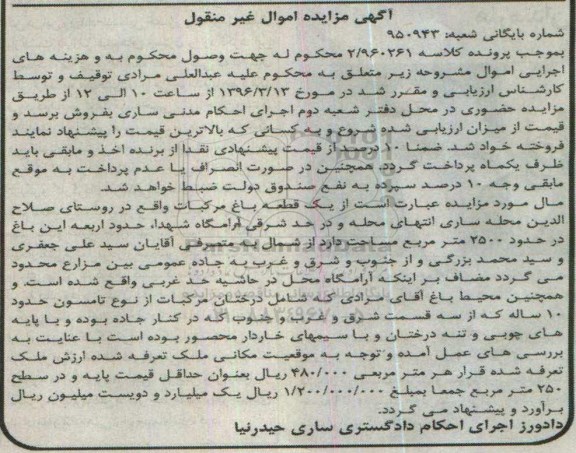 آگهی مزایده اموال غیر منقول
شماره بایگانی شعبه: ۹۵۰۹۴۳
بموجب پرونده کلاسه ۲/۹۶۰۲۶۱ محکوم له جهت وصول محکوم به و هزینه های
اجرایی اموال مشروحه زیر متعلق به محکوم علیه عبدالعلی مرادی توقیف و توسط
کارشناس ارزیابی و مقرر شد در مورخ ۱۳۹۶/۳/۱۳ از ساعت ۱۰ الی ۱۲ از طریق
مزایده حضوری در محل دفتر شعبه دوم اجرای احکام مدنی ساری بفروش برسد و
قیمت از میزان ارزیابی شده شروع و به کسانی که بالاترین قیمت را پیشنهاد نمایند
فروخته خواد شد. ضمنا ۱۰ درصد از قیمت پیشنهادی نقدا از برنده اخذ و مابقی باید
ظرف یکماه پرداخت گردد. همچنین در صورت انصراف یا عدم پرداخت به موقع
مابقی وجه ۱۰ درصد سپرده به نفع صندوق دولت ضبط خواهد شد.
مال مورد مزایده عبارت است از یک قطعه باغ مرکبات واقع در روستای صلاح
الدین محله ساری انتهای محله و در حد شرقی آرامگاه شهدا، حدود اربعه این باغ
در حدود ۲۵۰۰ متر مربع مساحت دارد از شمال به متصرفی آقایان سید علی جعفری
و سید محمد بزرگی و از جنوب و شرق و غرب به جاده عمومی بین مزارع محدود
می گردد مضاف بر اینکه آرامگاه محل در حاشیه حد غربی واقع شده است. و
همچنین محیط باغ آقای مرادی که شامل درختان مرکبات از نوع تامسون حدود
۱۰ ساله که از سه قسمت شرق و غرب و جنوب که در کنار جاده بوده و با پایه
های چوبی و تنه درختان و با سیمهای خاردار محصور بوده است با عنایت به
بررسی های عمل آمده و توجه به موقعیت مکانی ملک تعرفه شده ارزش ملک
تعرفه شده قرار هر متر مربعی ۴۸۰/۰۰۰ ریال بعنوان حداقل قیمت پایه و در سطح
۲۵۰ متر مربع جمعا بمبلغ ۱/۲۰۰/۰۰۰/۰۰۰ ریال یک میلیارد و دویست میلیون ریال
برآورد و پیشنهاد می گردد.
دادورز اجرای احکام دادگستری ساری حیدرنیا